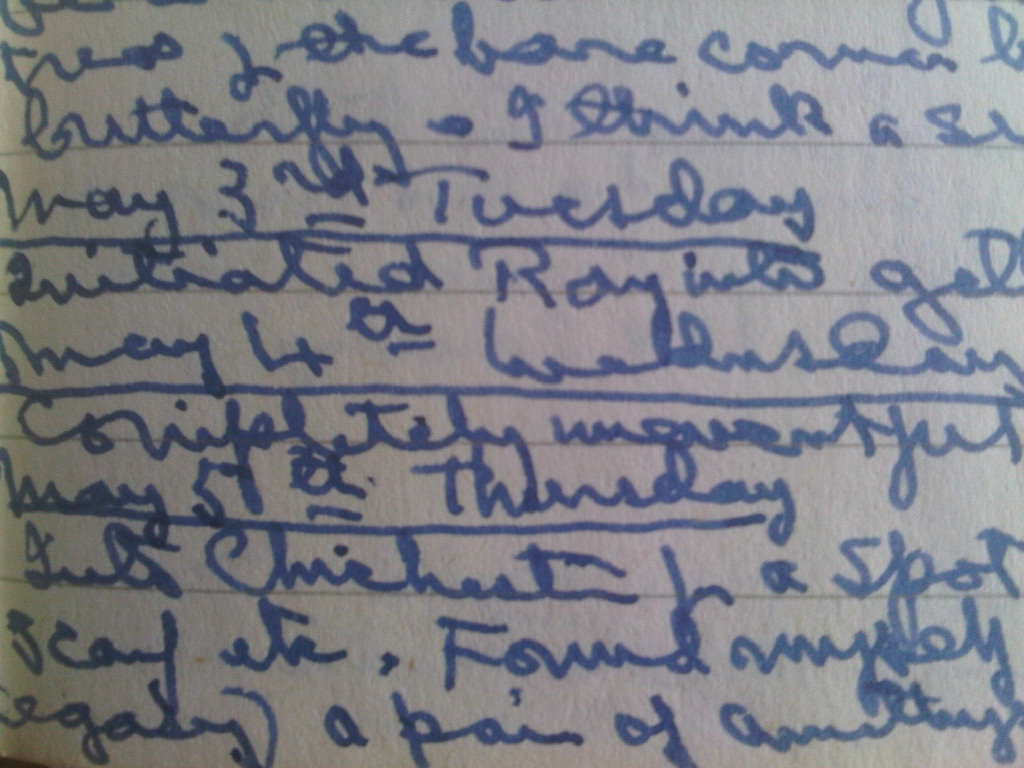 trees for the bare corner b
butterfly - I think a su
May 3rd Tuesday
Initiated Roy into gol
May 4th Wednesday
Completely uneventful
May 5th Thursday
Into Chichester for a spot
scarf etc. Found myself
legacy) a pair of